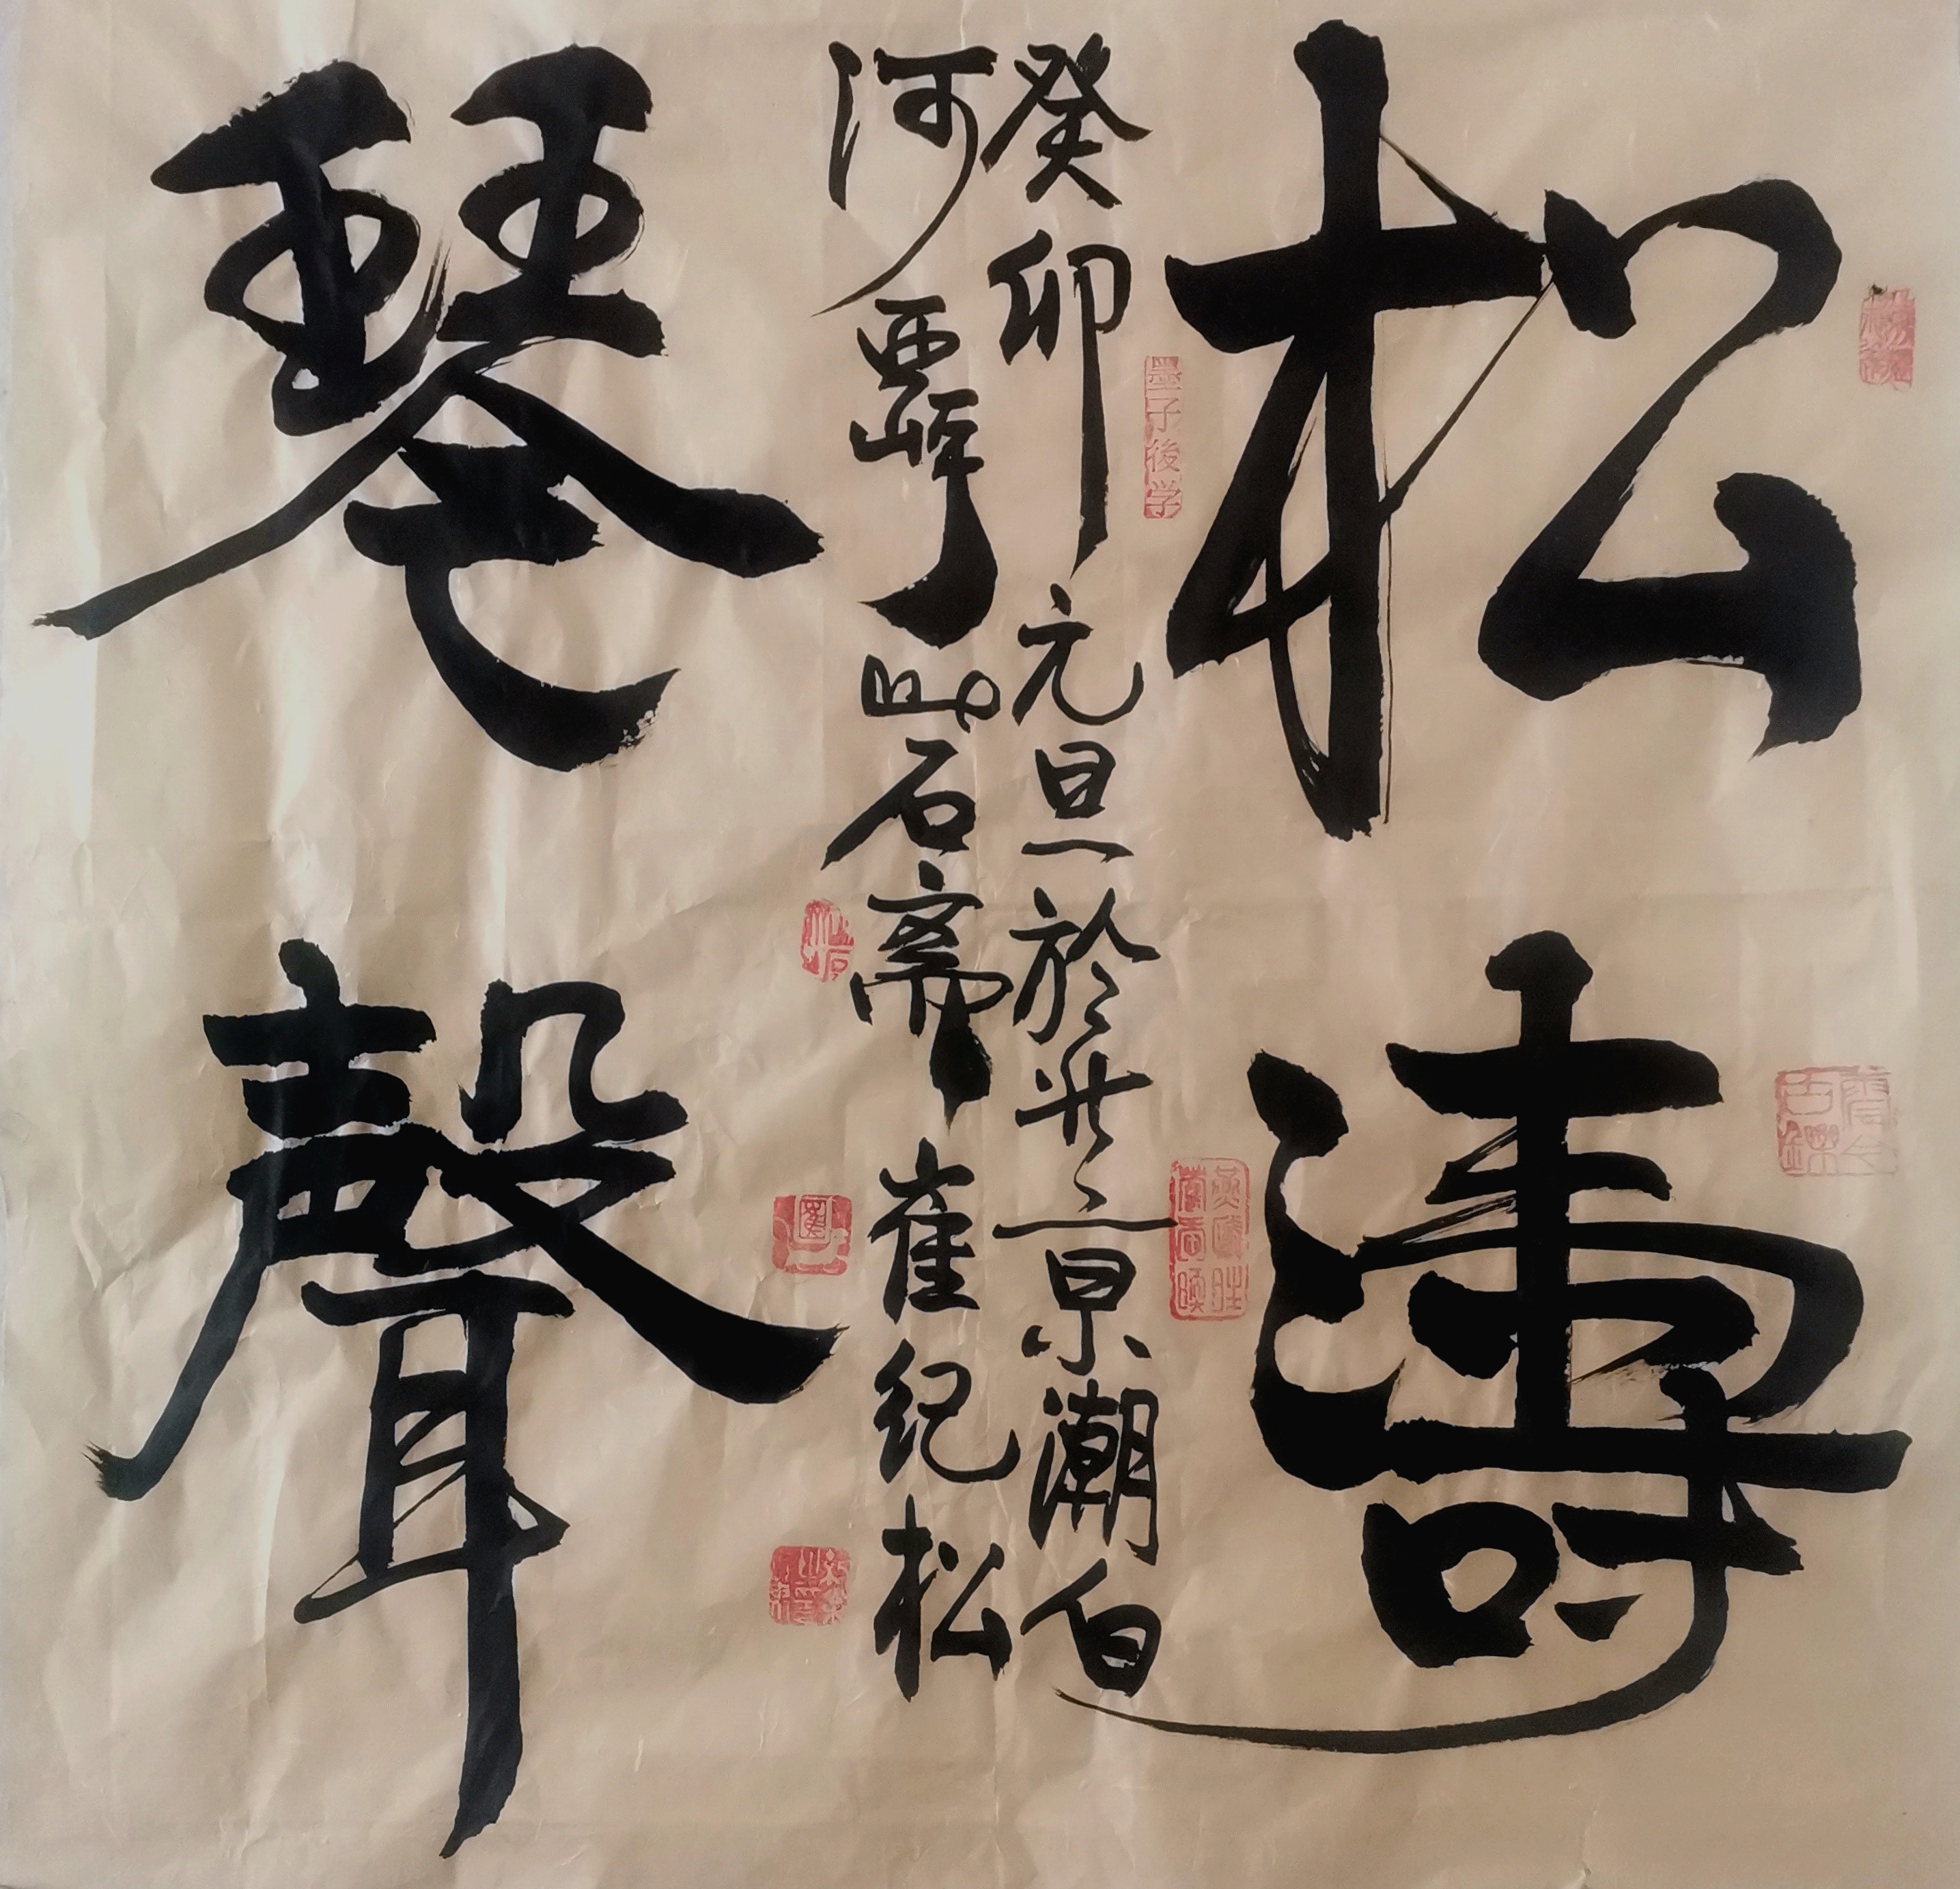 松濤
癸卯元旦於北京潮白
河西岸此石齋崔纪松
琴聲
墨子後学